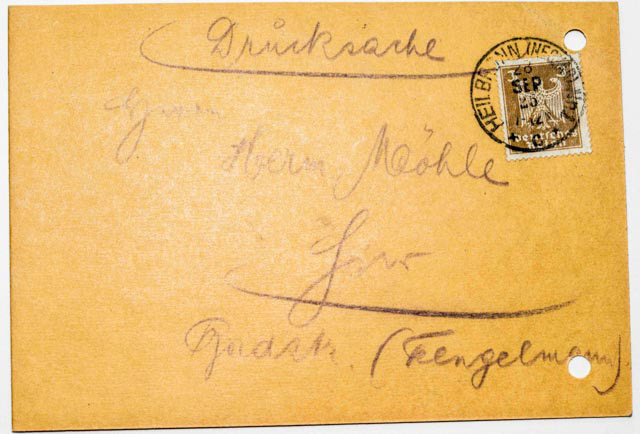 Drucksache
HEILBRONN (NECKAR)
26
SEP
25
Deutsches
Reich
Herrn
Herrn Möhle
Hier
(Tengelmann)